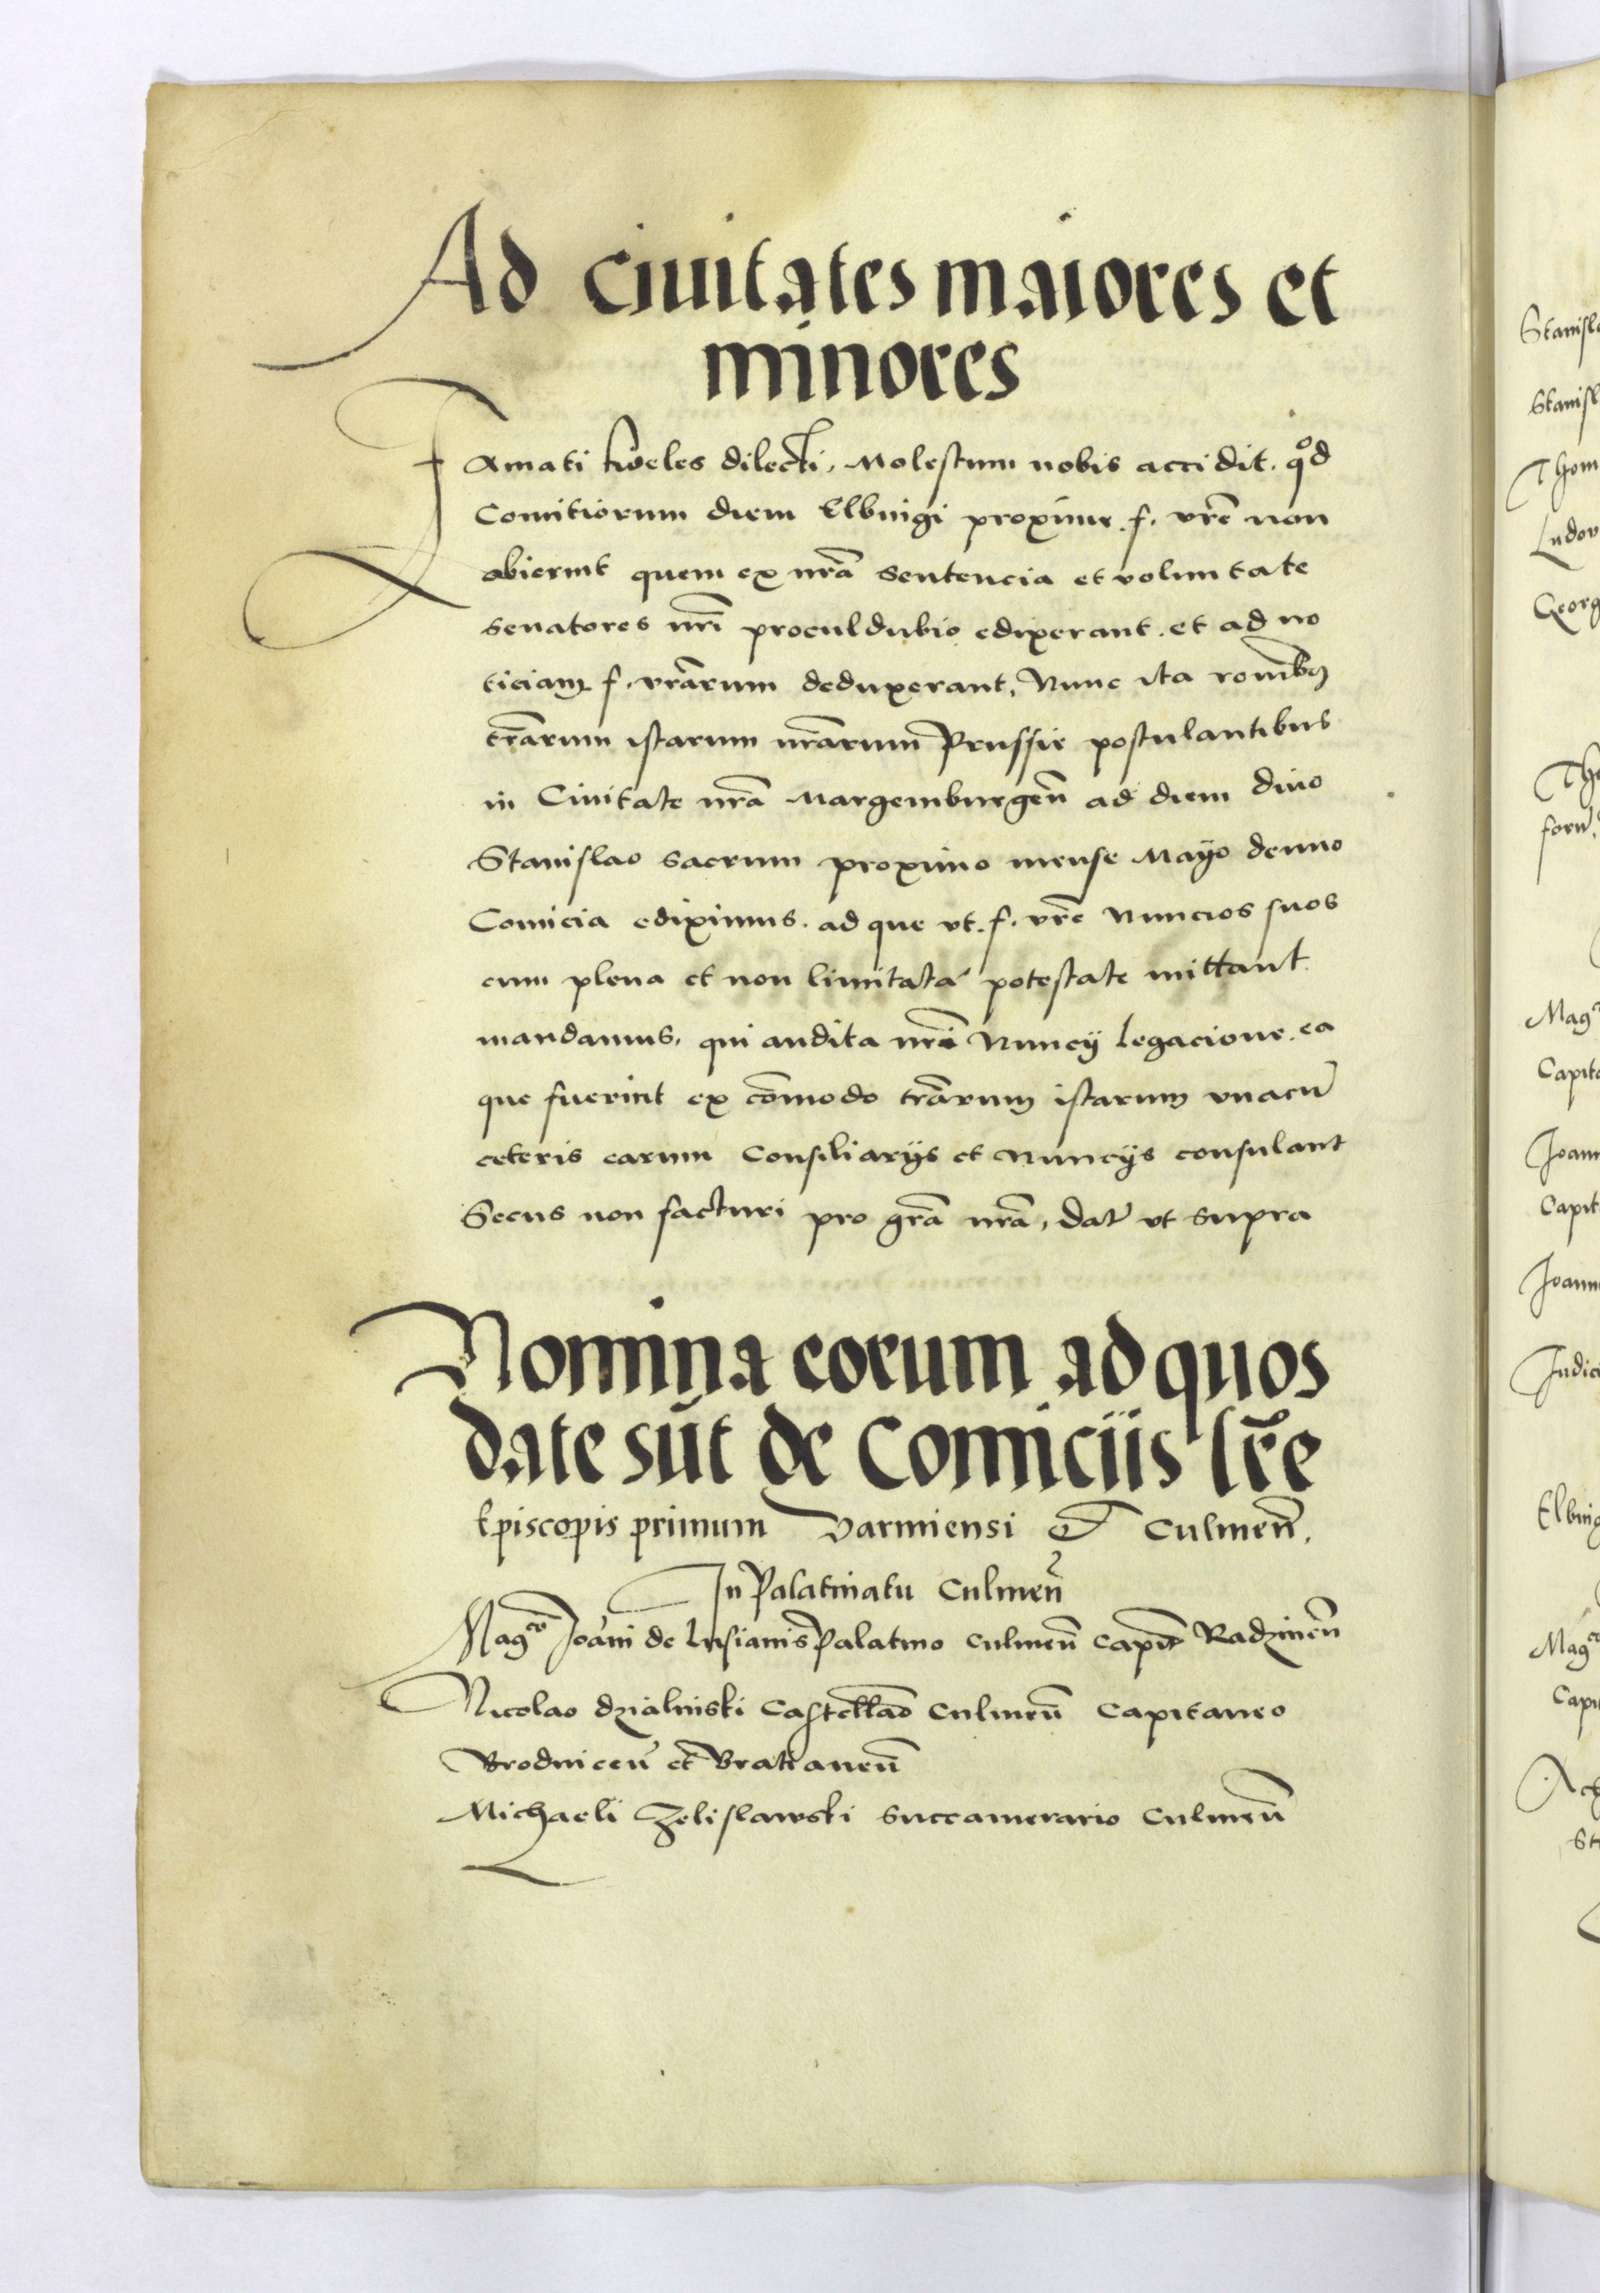 Ad ciuitates maiores et
minores
Famati fideles dilecti, Molestum nobis accidit. qod
Comitiorum diem Elbingi proxime. f. vr̃e non
abierint quem ex nr̃a sentencia et voluntate
senatores nr̃i proculdubio edixerant. et ad no
ticiam f. vr̃arum deduxerant, Nunc ita
tr̃arum istarum nr̃arum Prussie postulantibus
in Ciuitate nr̃a Margemburgen̄ ad diem diuo
Stanislao sacrum proximo mense Mayo denuo
Comicia ediximus. ad que vt. f. vr̃e Nuncios suos
cum plena et non limitata potestate mittant.
mandamus, qui audita nr̃i Nuncy legacione. ea
que fuerint ex cōmodo tr̃arum istarum vnacū
ceteris earum Consiliarys et Nuncys consulant
Secus non facturi pro gr̃a nr̃a, dat̄ vt supra
Nomina eorum ad quos
date sūt de Comiciis lr̃e
Episcopis primum Varmiensi Et Culmen̄.
In Palatinatu Culmen̄
Magco Joāni de Lusianis Palatino Culmen̄ Capit̄ Radzinen̄
Nicolao dzialinski Castellāo Culmen̄ Capitaneo
Brodnicen̄ et Bratianen̄
Michaeli Zelislawski succamerario Culmen̄
Stanisl
Stanisl
Thom
Ludov
Georg
Th
Mag
Capita
Joann
Capit
Joann
Judici
Elbing
Mag
Capi
Ach